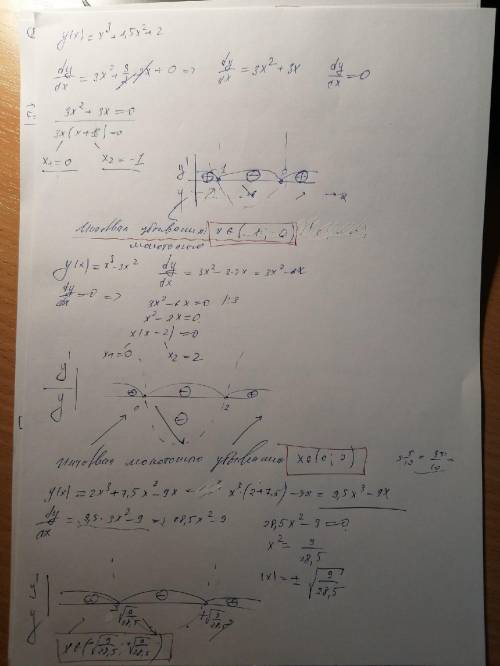 y(x) = x³ + 1,5x² + 2
dy/dx = 3x² + 3/2 · 2x + 0 => dy/dx = 3x² + 3x dy/dx = 0
3x² + 3x = 0
3x(x+1) = 0
x₁ = 0 x₂ = -1
y' + -1 - 0 + x
y
Интервал убывания: x ∈ (-1; 0)
монотонного
y(x) = x³ - 3x² dy/dx = 3x² - 3·2x = 3x² - 6x
dy/dx = 0 => 3x² - 6x = 0 |:3
x² - 2x = 0
x(x-2) = 0
x₁ = 0 x₂ = 2
y' + 0 - 2 +
y
Интервал монотонного убывания: x ∈ (0; 2)
y(x) = 2x³ + 7,5x² - 9x x³·(2+7,5) - 9x = 9,5x³ - 9x
dy/dx = 9,5·3x² - 9 = 28,5x² - 9 28,5x² - 9 = 0
x² = 9/28,5
|x| = ± √(9/28,5)
y'
y -√(9/28,5) +√(9/28,5)
x ∈ (-√(9/28,5); +√(9/28,5))